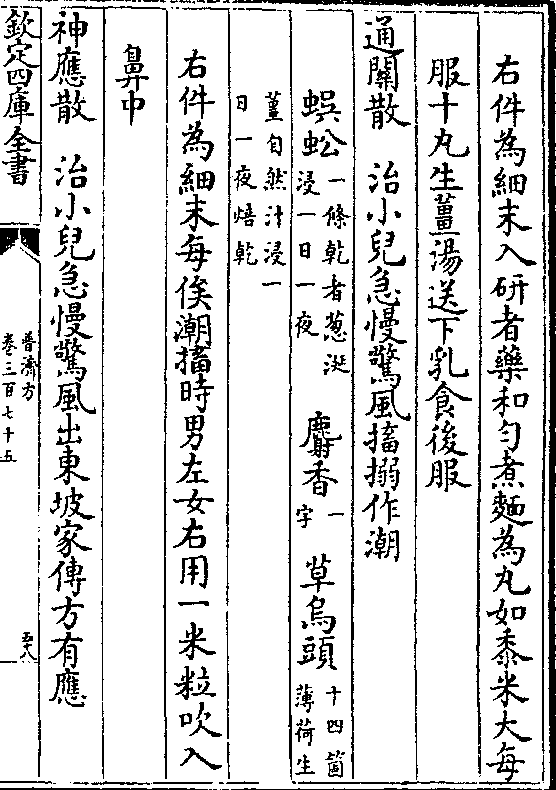 右件為細末入研者藥和勻煮麵為丸如黍米大每
服十丸生薑湯送下乳食後服
通關散　治小兒急慢驚風搐搦作潮
蜈蚣一條乾者葱涎浸一日一夜　麝香一字　草烏頭十四箇薄荷生
薑自然汁浸一日一夜焙乾
右件為細末每俟潮搐時男左女右用一米粒吹入
鼻中
神應散　治小兒急慢驚風出東坡家傳方有應
欽定四庫全書
普濟方
卷三百七十五
五十八